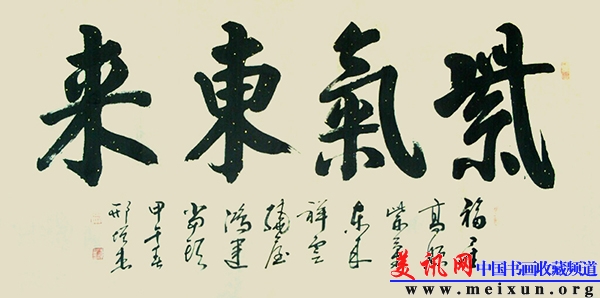 紫氣東来
福居
高照
紫氣
東来
祥雲
繞屋
鴻運
當頭
甲午春
邢俊杰
美讯网 中国书画收藏频道
www.meixun.org